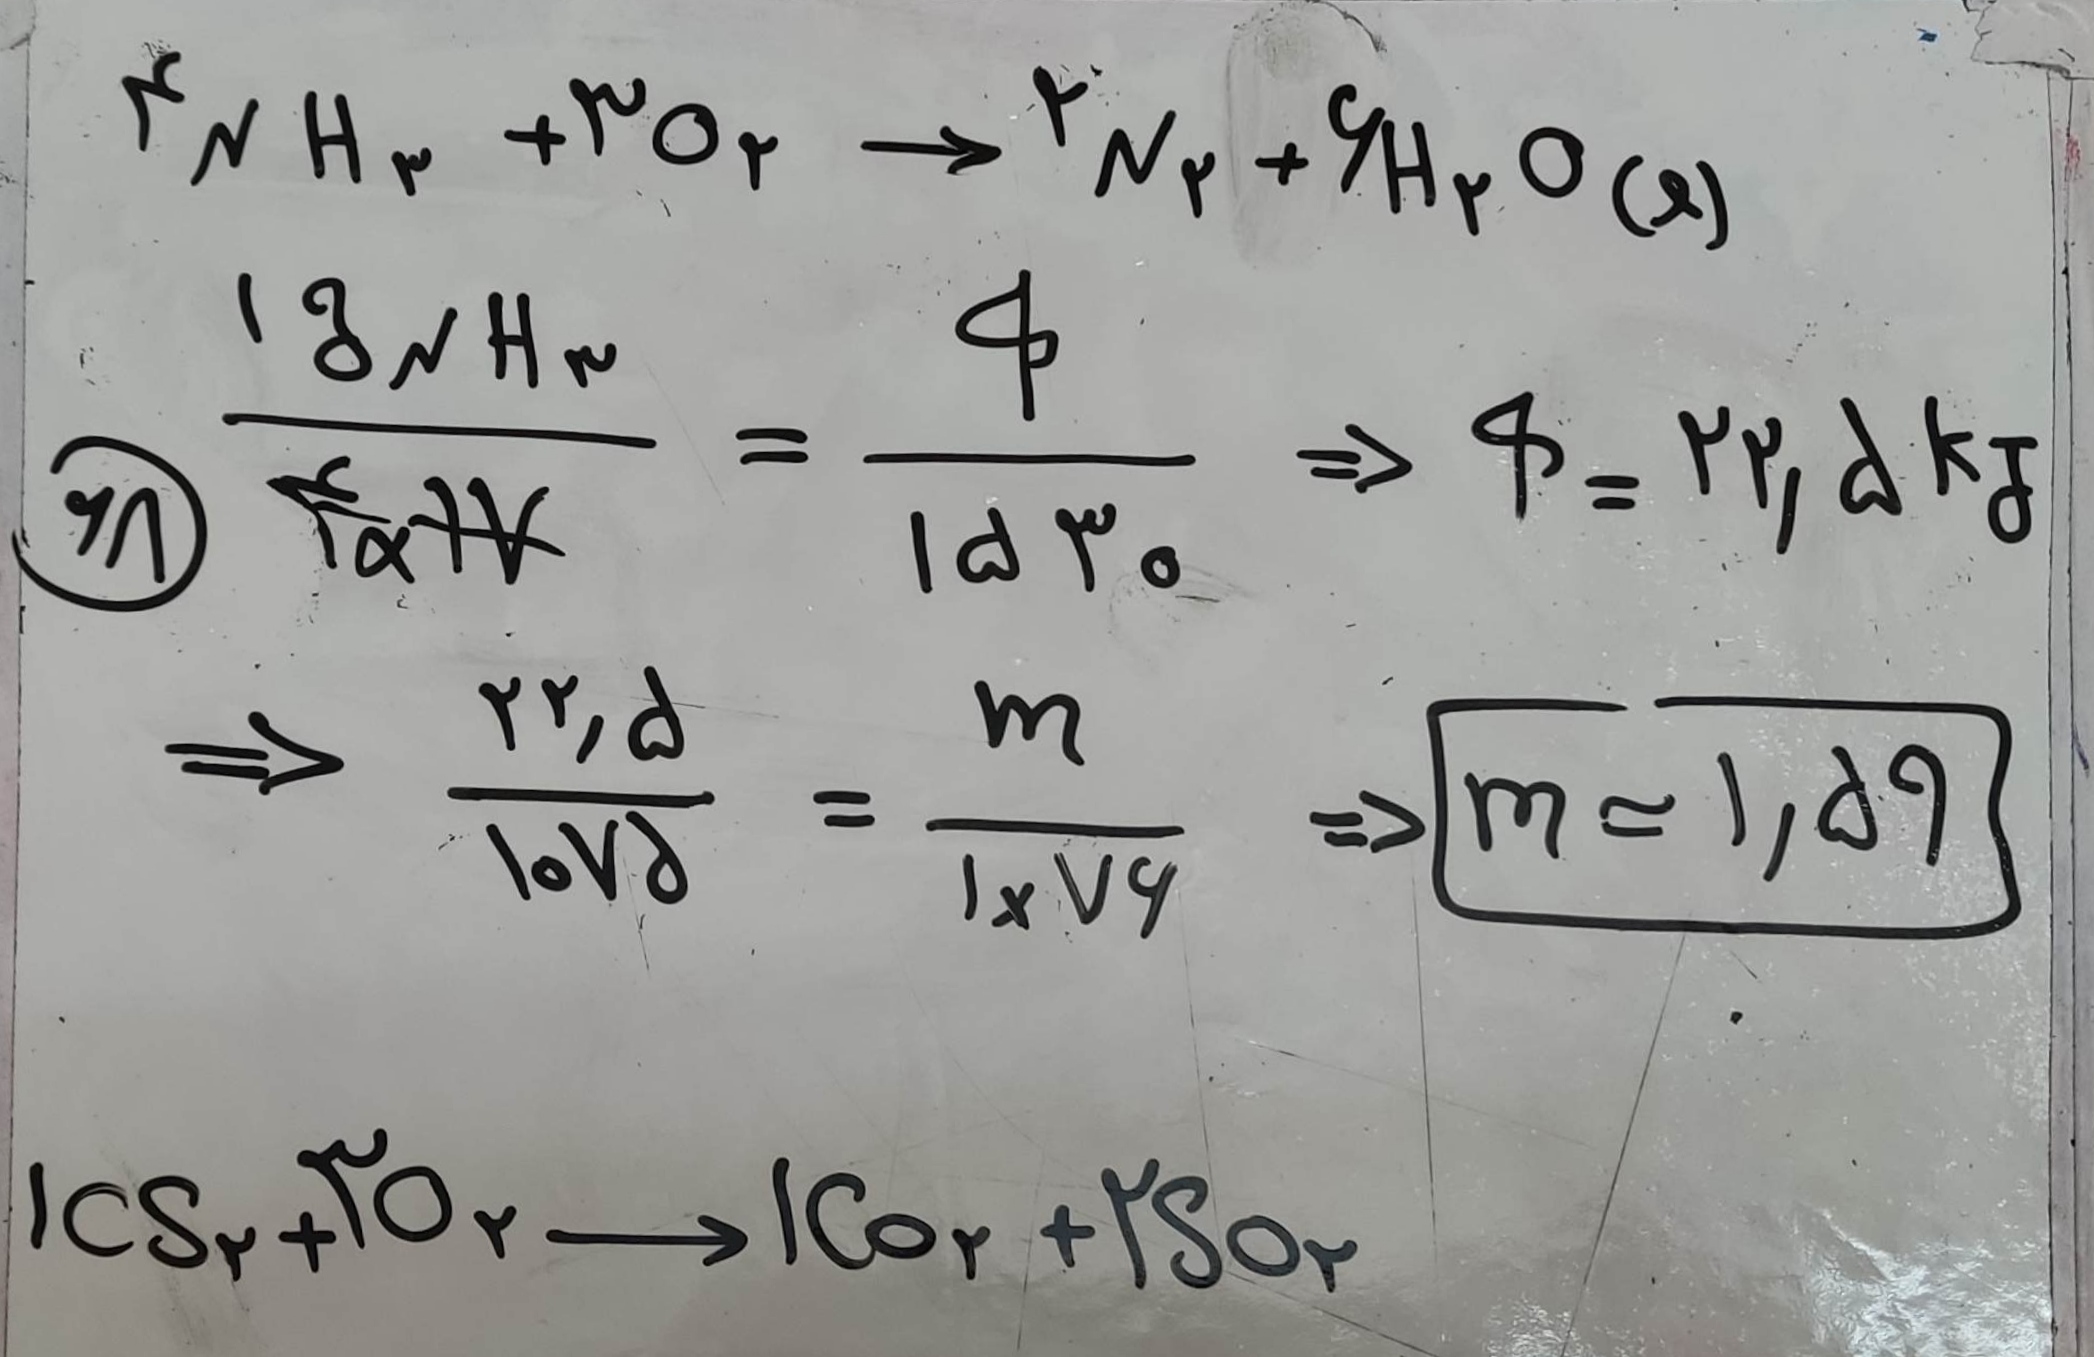 ۴NH۳ + ۳O۲ → ۲N۲ + ۶H۲O(l)
۱gNH۳ / ۴×۱۷ = q / ۱۵۳۰ ⇒ q = ۲۲,۵ kJ
۶۸
⇒ ۲۲,۵ / ۱۰۷۵ = m / ۱×۷۶ ⇒ m ≃ ۱,۵۹
۱CS۲ + ۳O۲ → ۱CO۲ + ۲SO۲